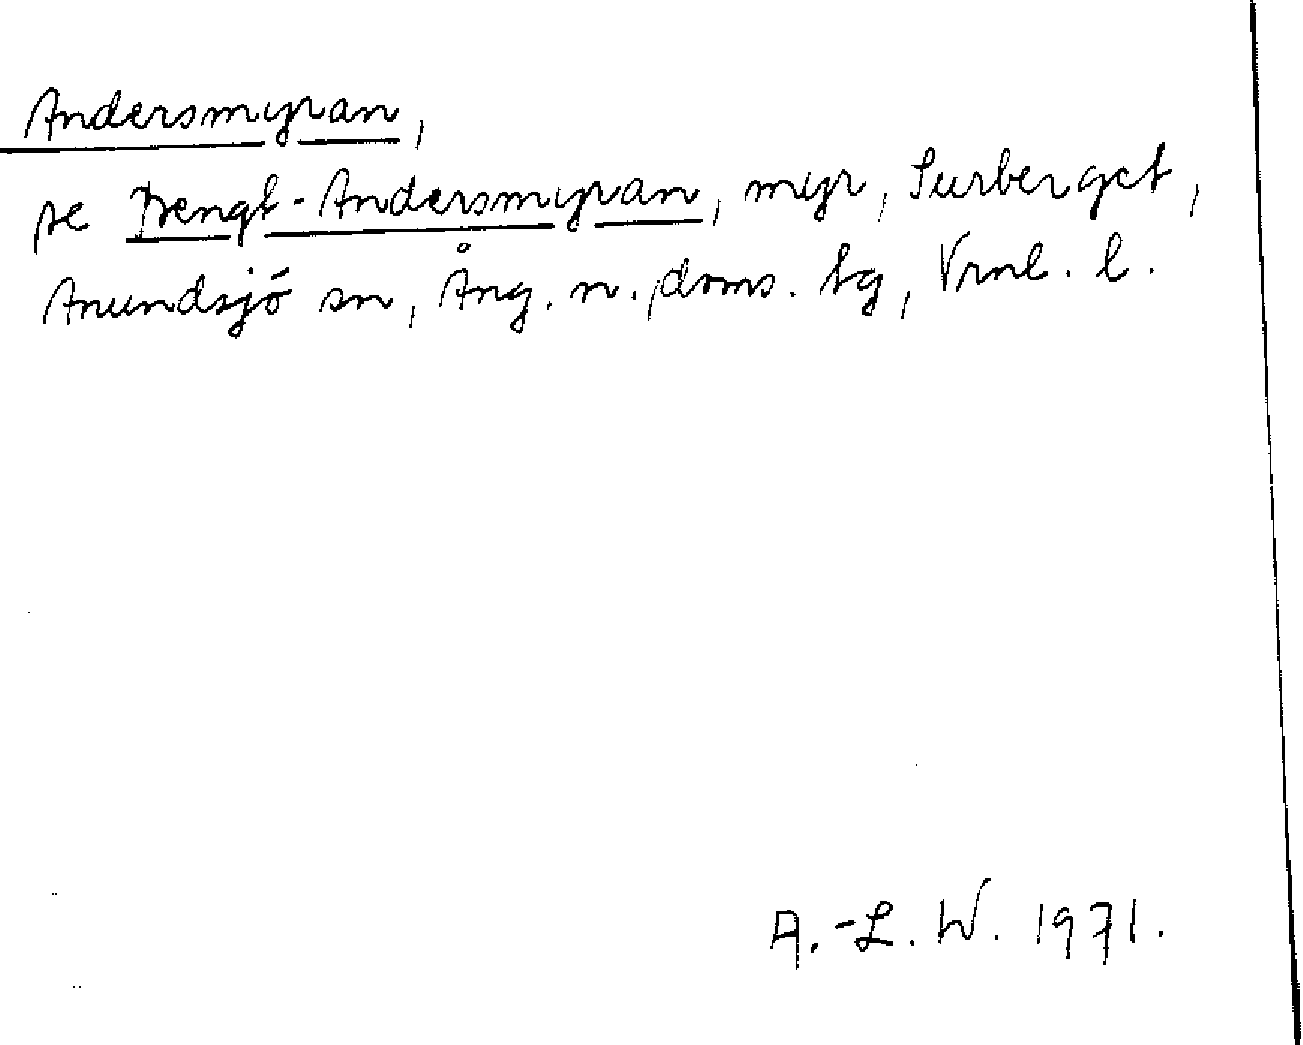 Andersmyran,
se Bengt-Andersmyran, myr, Surberget,
Anundsjö sn, Ång. n. doms. tg, Vrnl. l.
A.-L. W. 1971.